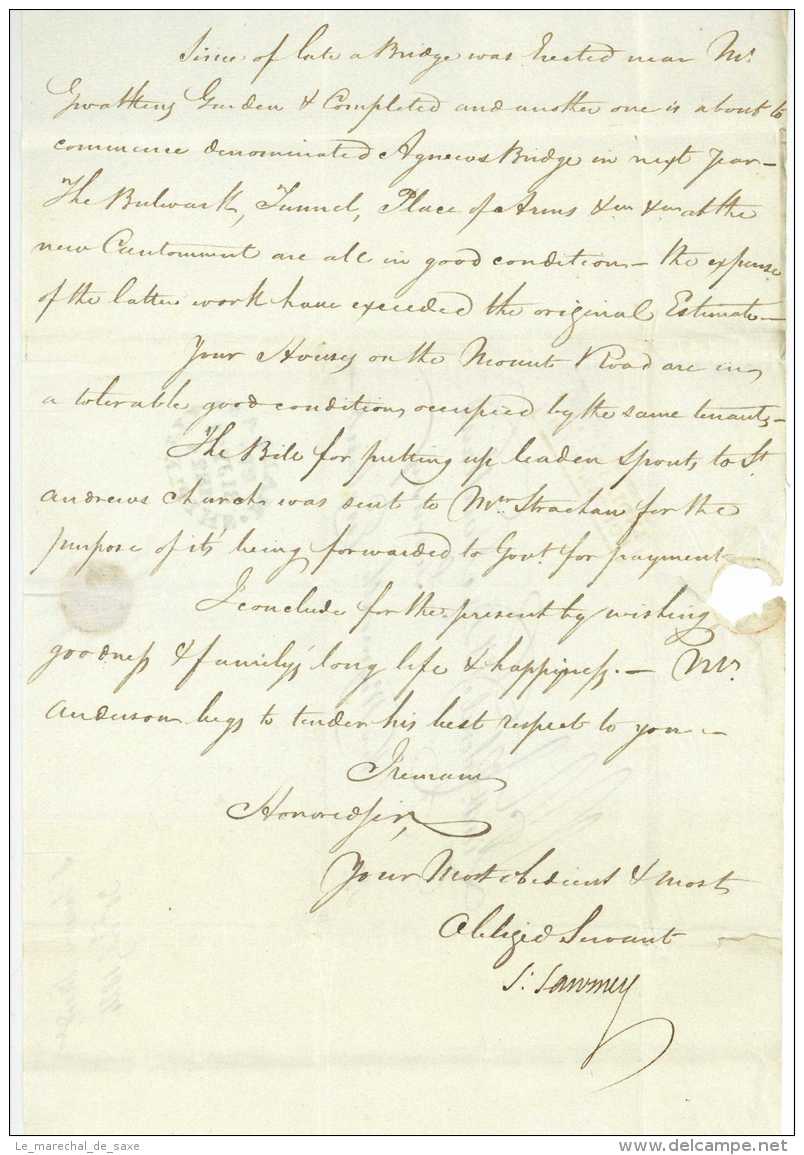 Since of late a Bridge was Erected near Mr.
Gwatkins Garden & Completed and another one is about to
commence denominated Agnews Bridge in next Year —
The Bulwark, Tunnel, Place of Arms &ca &ca at the
new Cantonment are all in good condition — the expense
of the latter work have exceeded the original Estimate —
Your Houses on the Mount Road are in
a tolerable good condition, occupied by the same tenants —
The Bill for putting up leaden Spouts to St.
Andrews Church was sent to Mr. Strachan for the
purpose of its being forwarded to Govt. for payment —
I conclude for the present by wishing
goodness & family's long life & happiness. — Mr.
Anderson begs to tender his best respect to you —
I remain
Honored Sir,
Your Most obedient & most
Obliged Servant
S. Sawmey
Le_marechal_de_saxe
www.delcampe.net